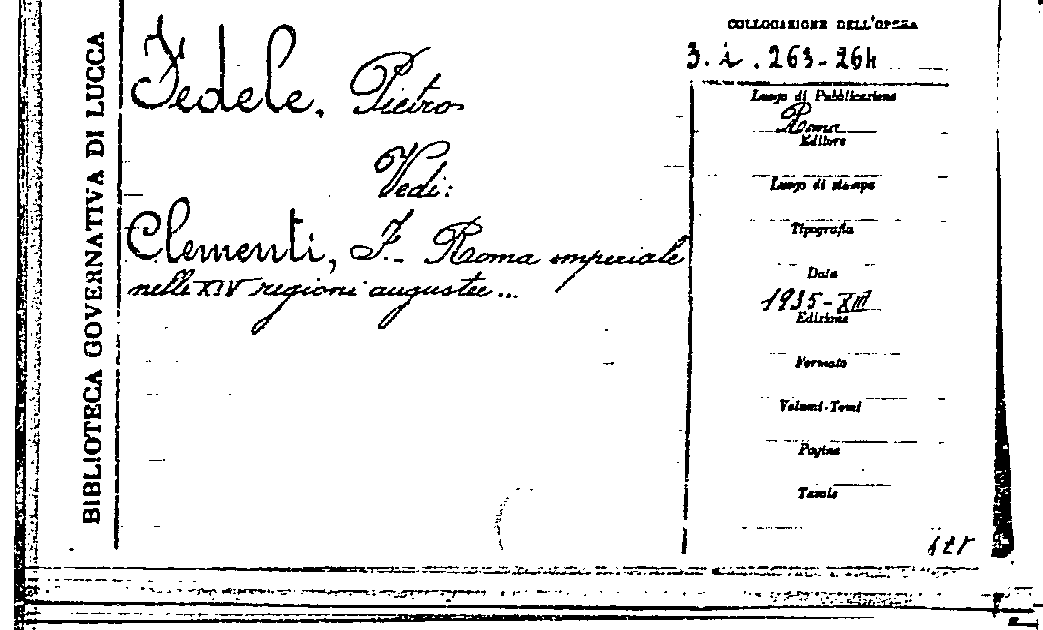 BIBLIOTECA GOVERNATIVA DI LUCCA
Fedele, Pietro
Vedi:
Clementi, F. - Roma imperiale
nelle XIV regioni augustee...
COLLOCAZIONE DELL'OPERA
3. i. 263-264
Luogo di Pubblicazione
Roma
Editore
Luogo di stampa
Tipografia
Data
1935-XIII
Edizione
Formato
Volumi-Tomi
Pagine
Tavole